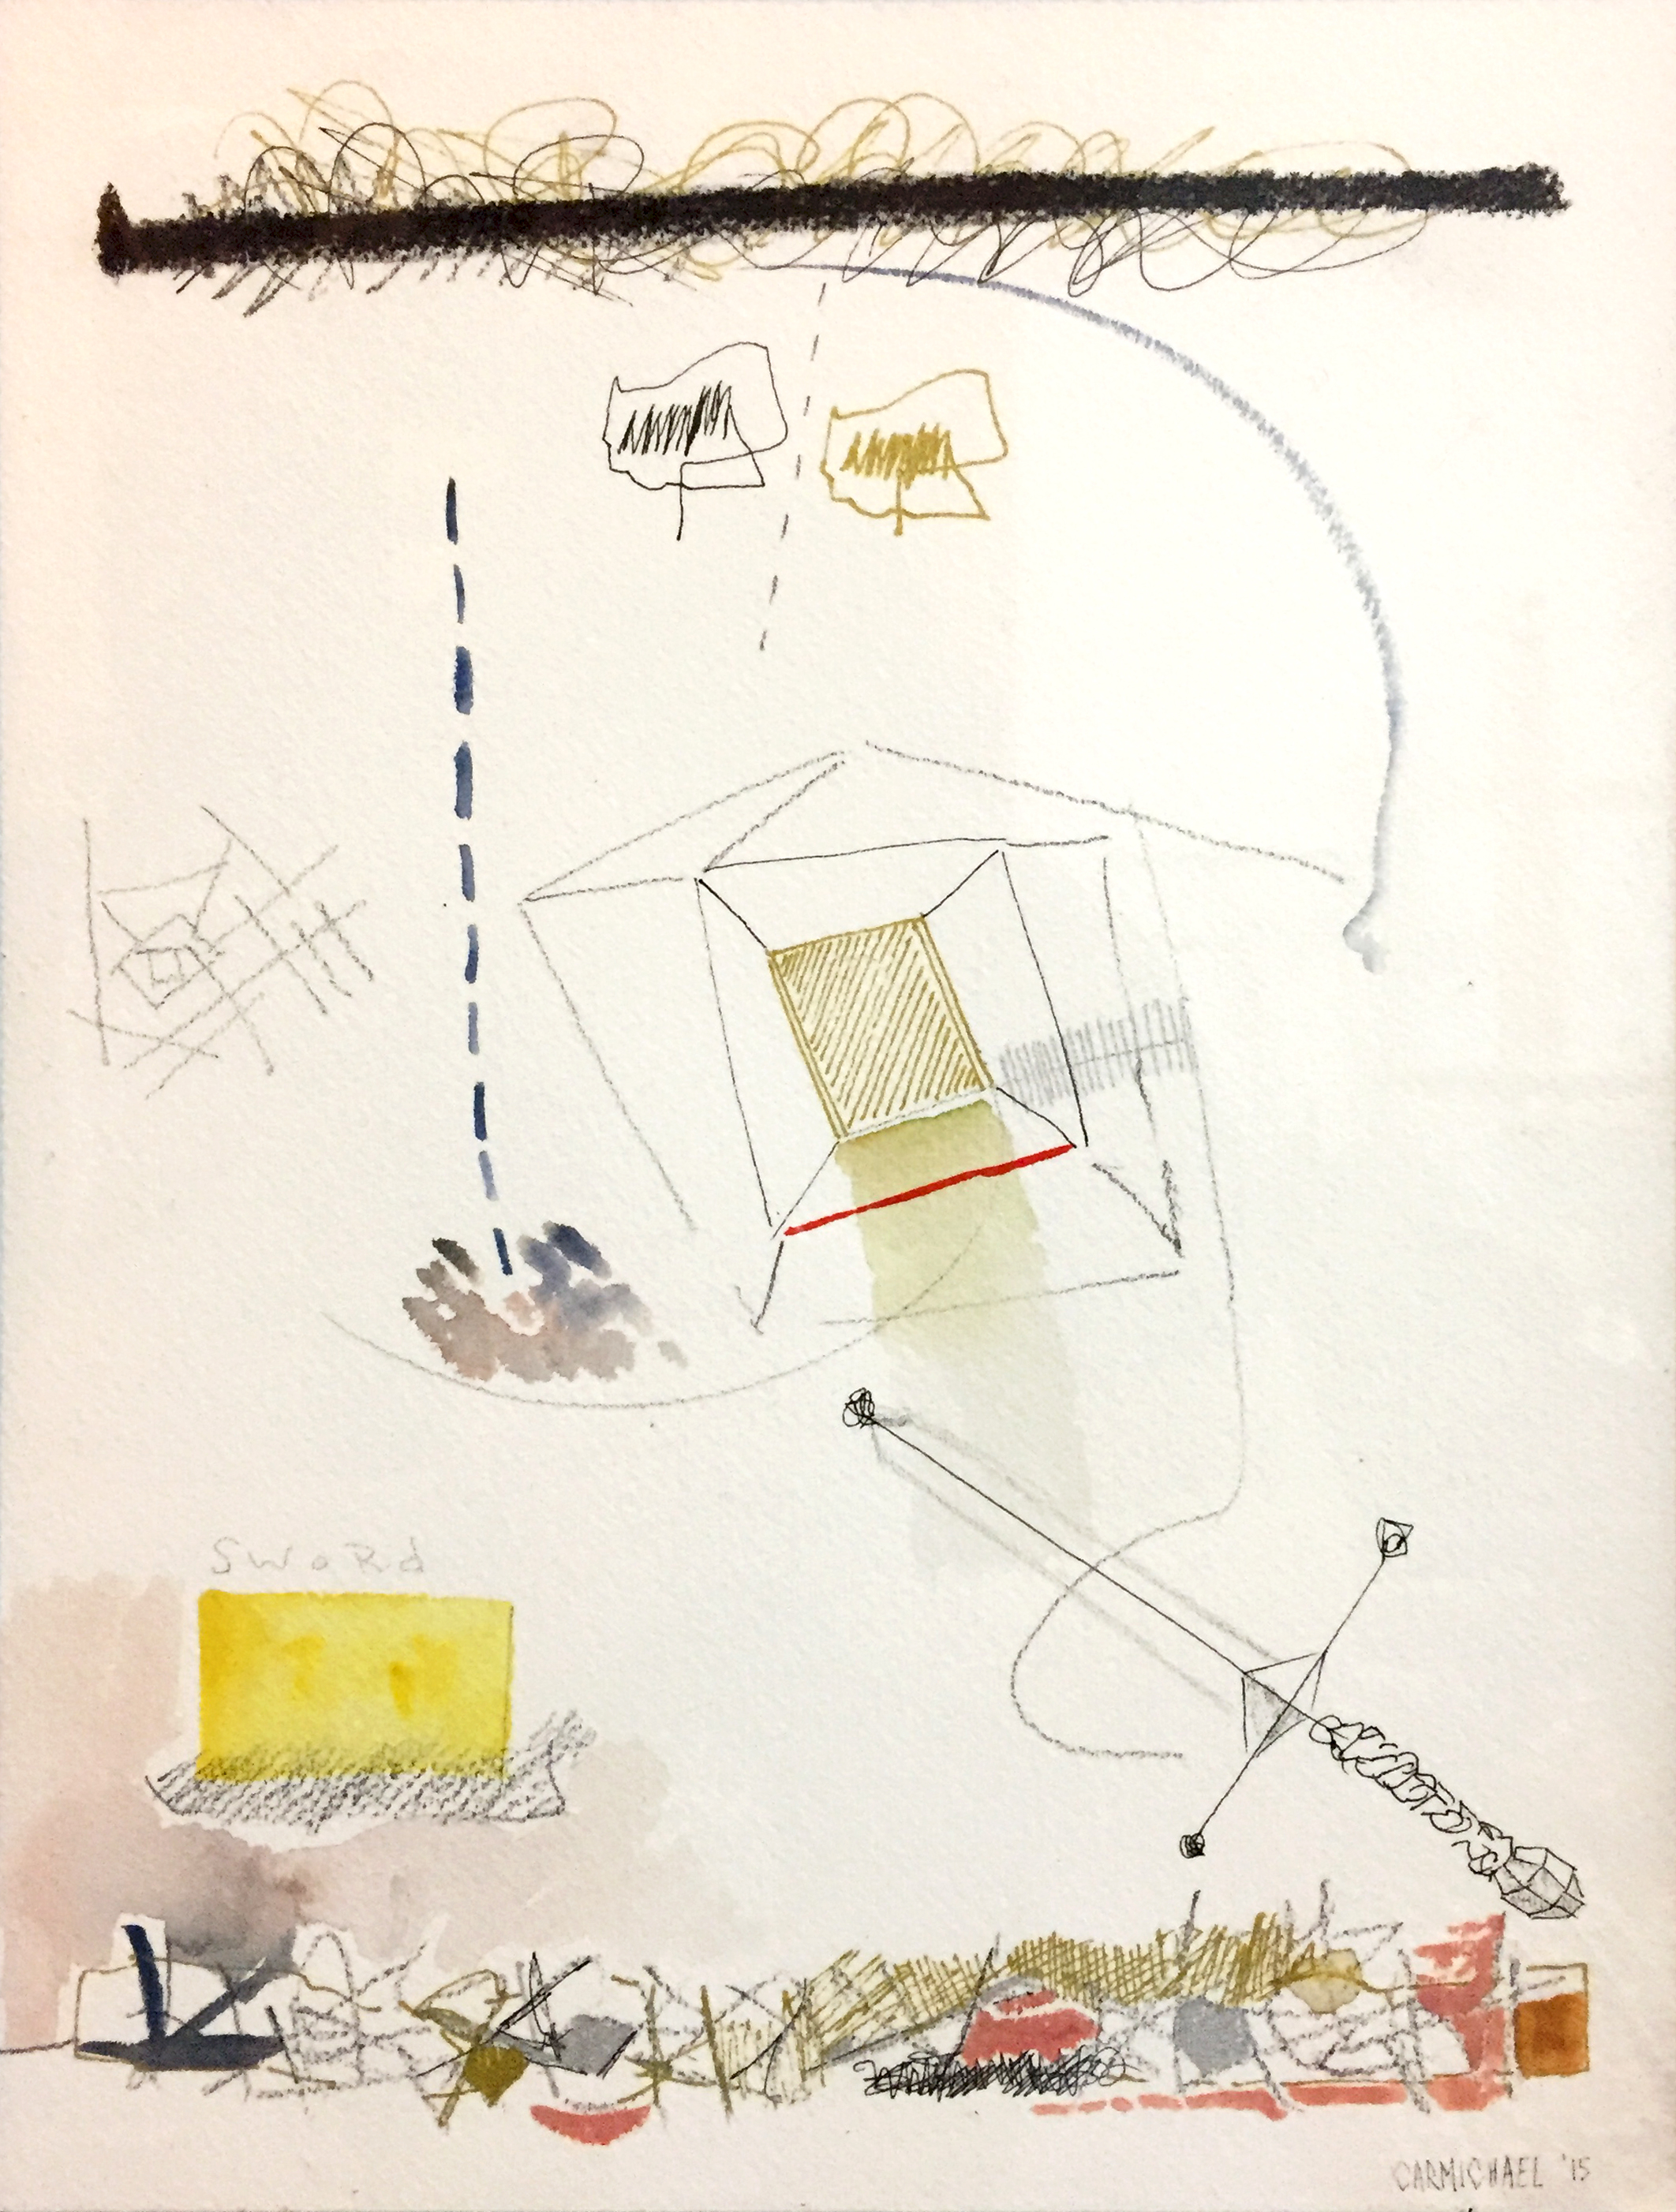 SWoRd
CARMICHAEL '15